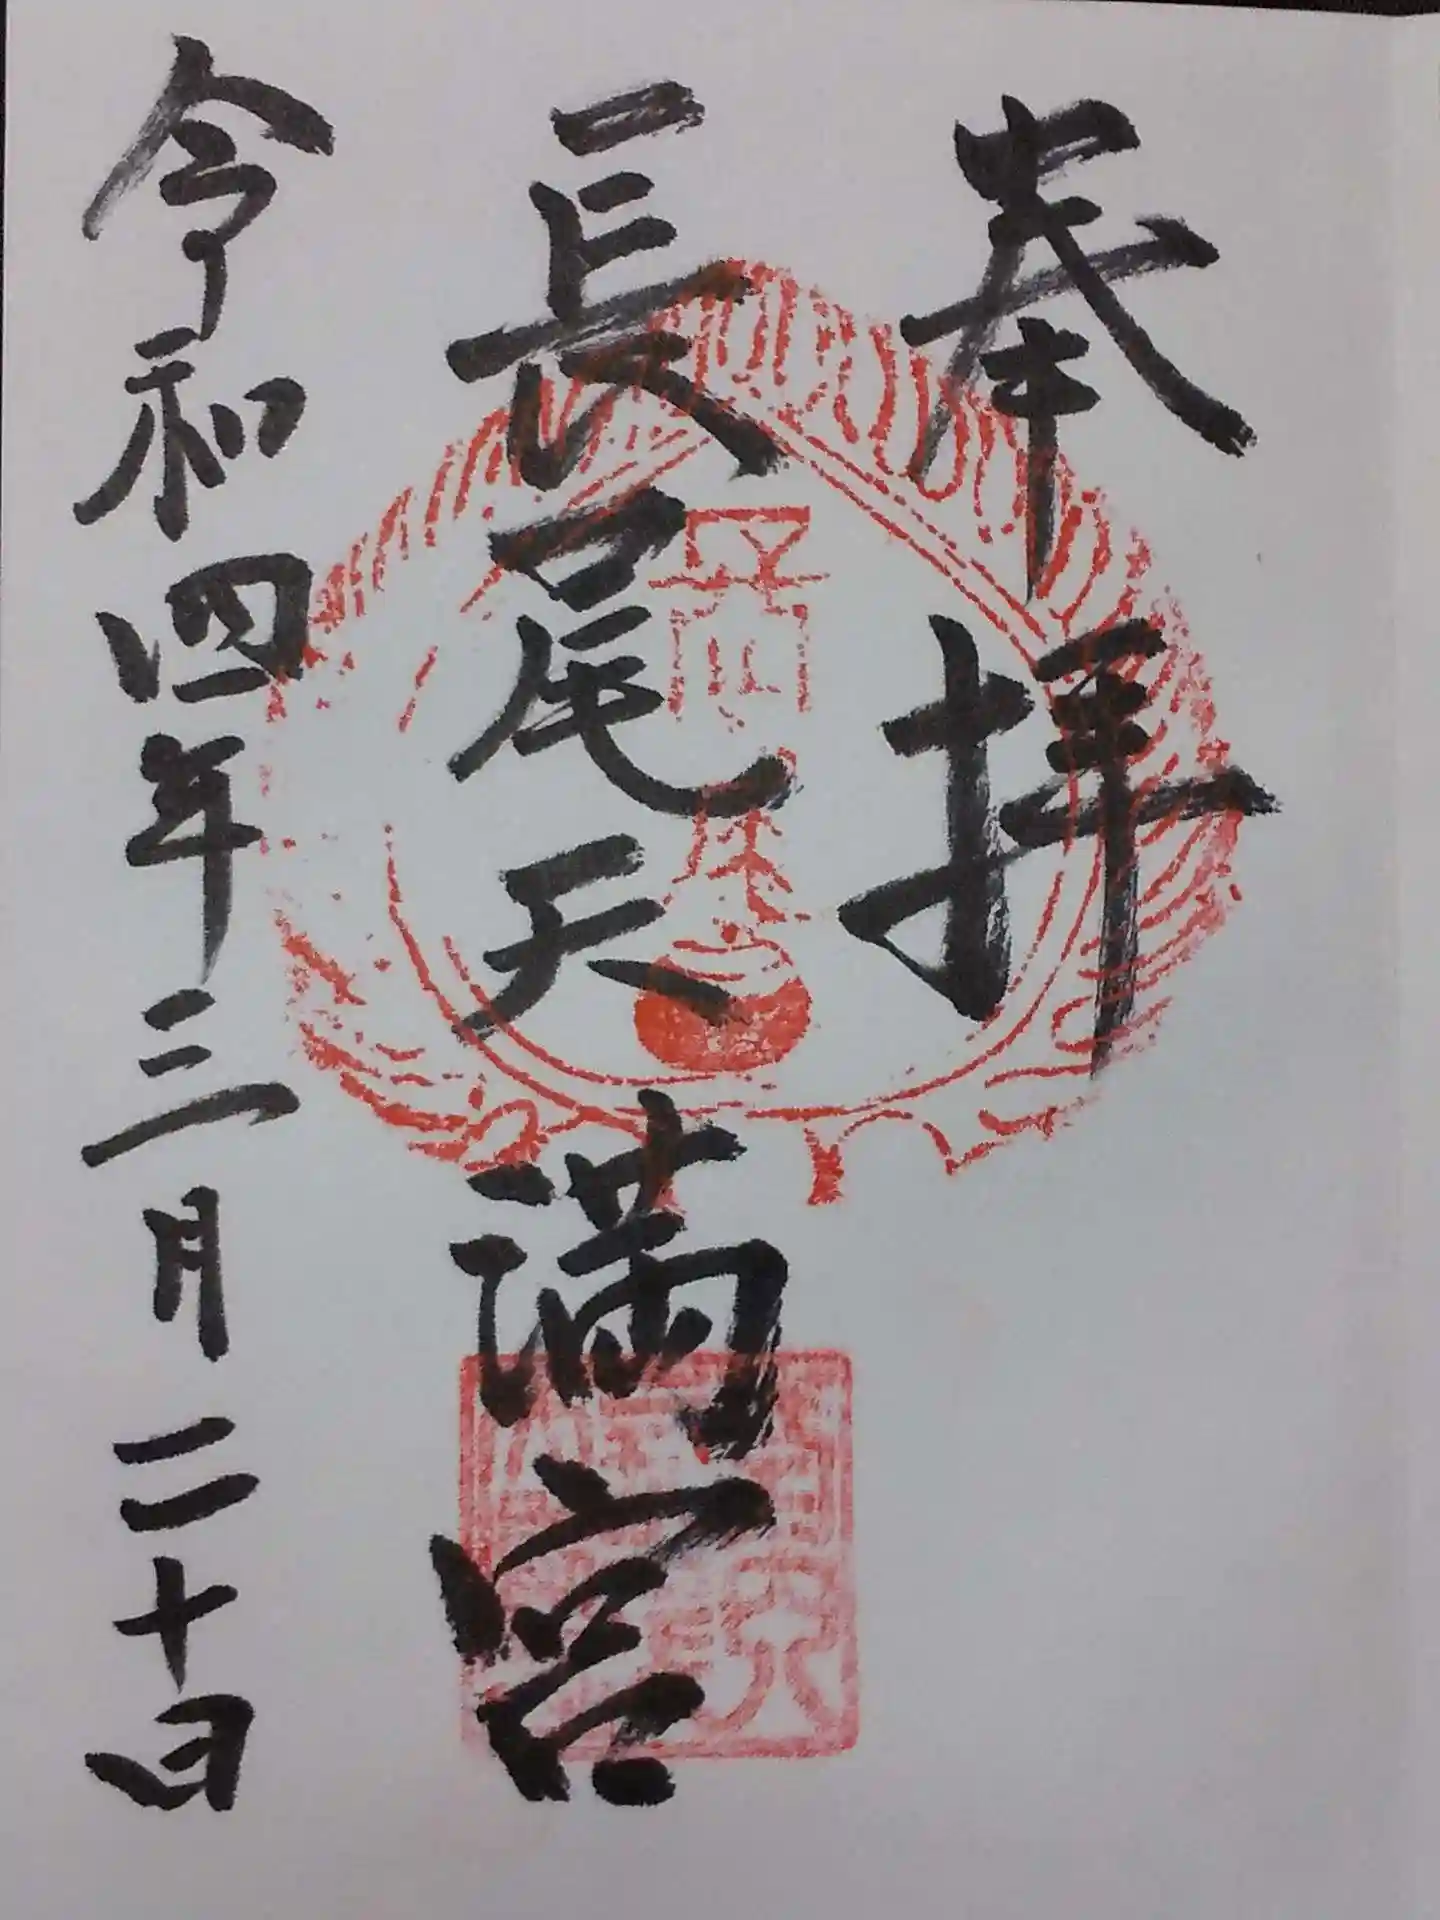 奉拝
長尾天満宮
令和四年三月二十日